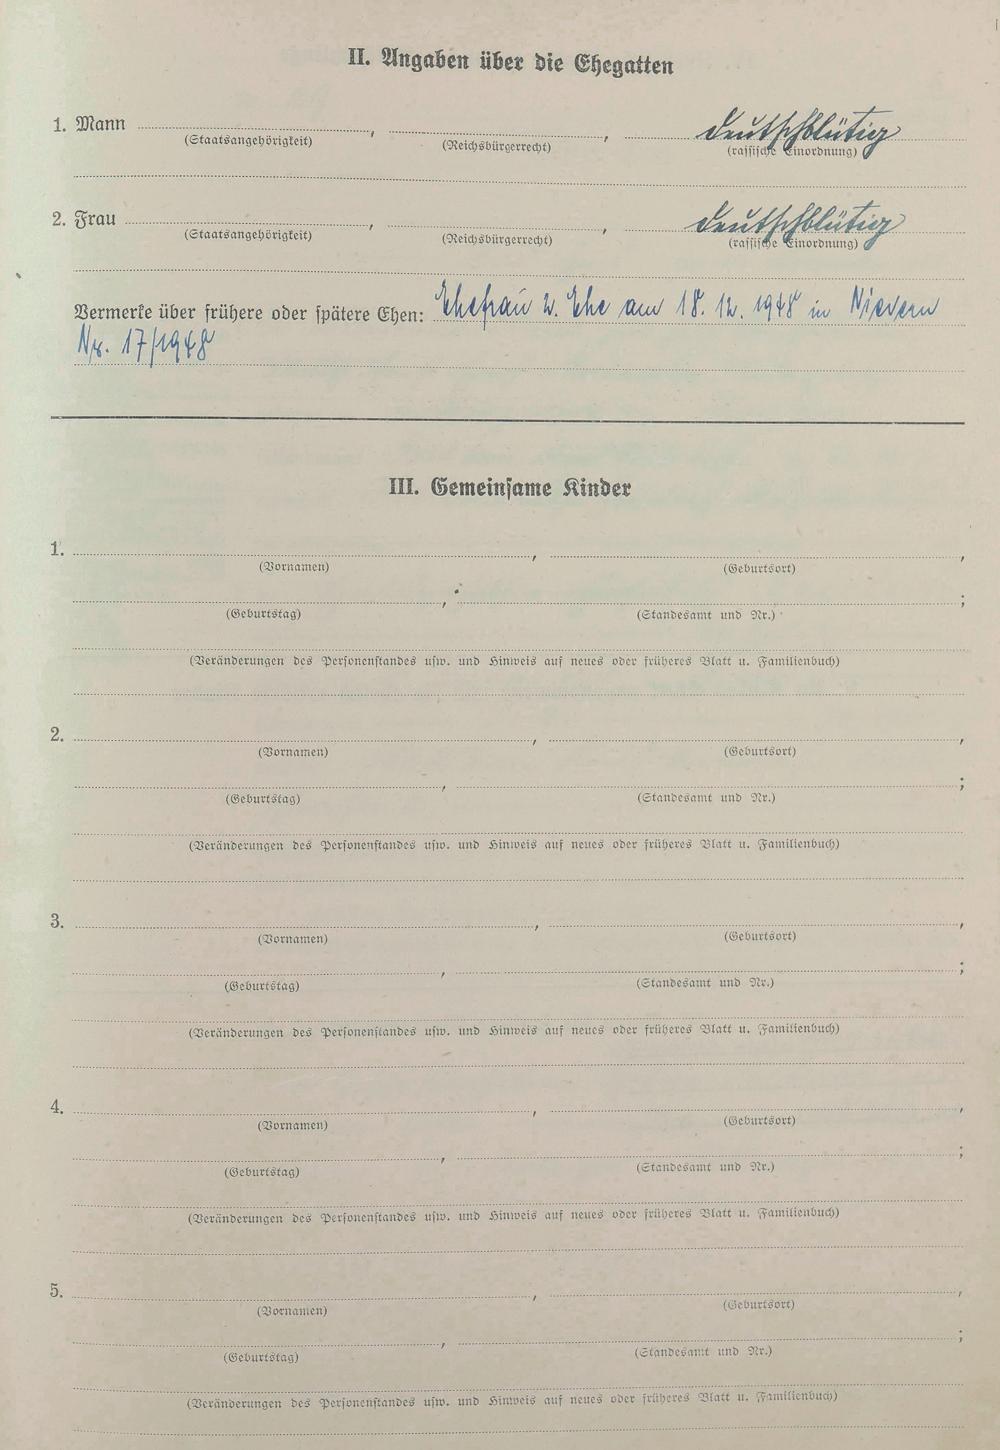 II. Angaben über die Ehegatten
1. Mann , , deutschblütig
(Staatsangehörigkeit) (Reichsbürgerrecht) (rassische Einordnung)
2. Frau , , deutschblütig
(Staatsangehörigkeit) (Reichsbürgerrecht) (rassische Einordnung)
Vermerke über frühere oder spätere Ehen: Ehefrau 2. Ehe am 18. 12. 1948 in Nievern
Nr. 17/1948
III. Gemeinsame Kinder
1. , ,
(Vornamen) (Geburtsort)
, ;
(Geburtstag) (Standesamt und Nr.)
(Veränderungen des Personenstandes usw. und Hinweis auf neues oder früheres Blatt u. Familienbuch)
2. , ,
(Vornamen) (Geburtsort)
, ;
(Geburtstag) (Standesamt und Nr.)
(Veränderungen des Personenstandes usw. und Hinweis auf neues oder früheres Blatt u. Familienbuch)
3. , ,
(Vornamen) (Geburtsort)
, ;
(Geburtstag) (Standesamt und Nr.)
(Veränderungen des Personenstandes usw. und Hinweis auf neues oder früheres Blatt u. Familienbuch)
4. , ,
(Vornamen) (Geburtsort)
, ;
(Geburtstag) (Standesamt und Nr.)
(Veränderungen des Personenstandes usw. und Hinweis auf neues oder früheres Blatt u. Familienbuch)
5. , ,
(Vornamen) (Geburtsort)
, ;
(Geburtstag) (Standesamt und Nr.)
(Veränderungen des Personenstandes usw. und Hinweis auf neues oder früheres Blatt u. Familienbuch)